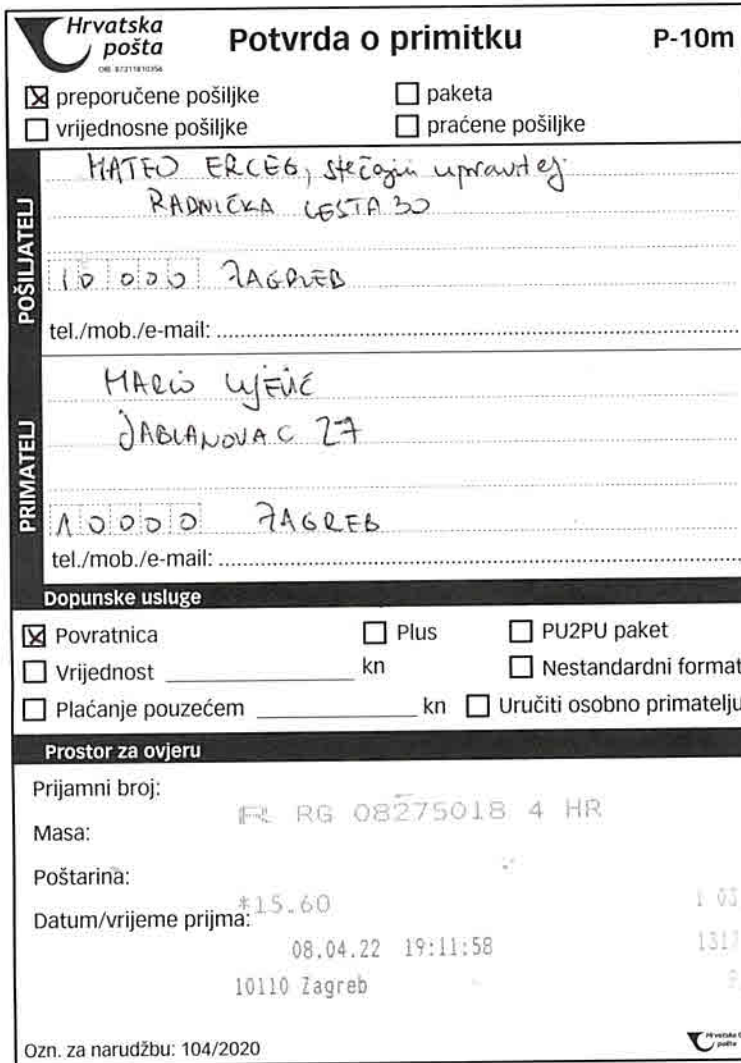 Hrvatska pošta
Potvrda o primitku
P-10m
preporučene pošiljke
paketa
vrijednosne pošiljke
praćene pošiljke
POŠILJATELJ
MATEO ERCEG, stečajni upravitelj
RADNIČKA CESTA 30
10 000 ZAGREB
tel./mob./e-mail:
PRIMATELJ
MARIO UJEVIĆ
JABLANOVAC 27
10000 ZAGREB
tel./mob./e-mail:
Dopunske usluge
Povratnica
Plus
PU2PU paket
Vrijednost kn
Nestandardni format
Plaćanje pouzećem kn
Uručiti osobno primatelju
Prostor za ovjeru
Prijamni broj:
RG 08275018 4 HR
Masa:
Poštarina:
*15.60
Datum/vrijeme prijma:
08.04.22 19:11:58
10110 Zagreb
Ozn. za narudžbu: 104/2020